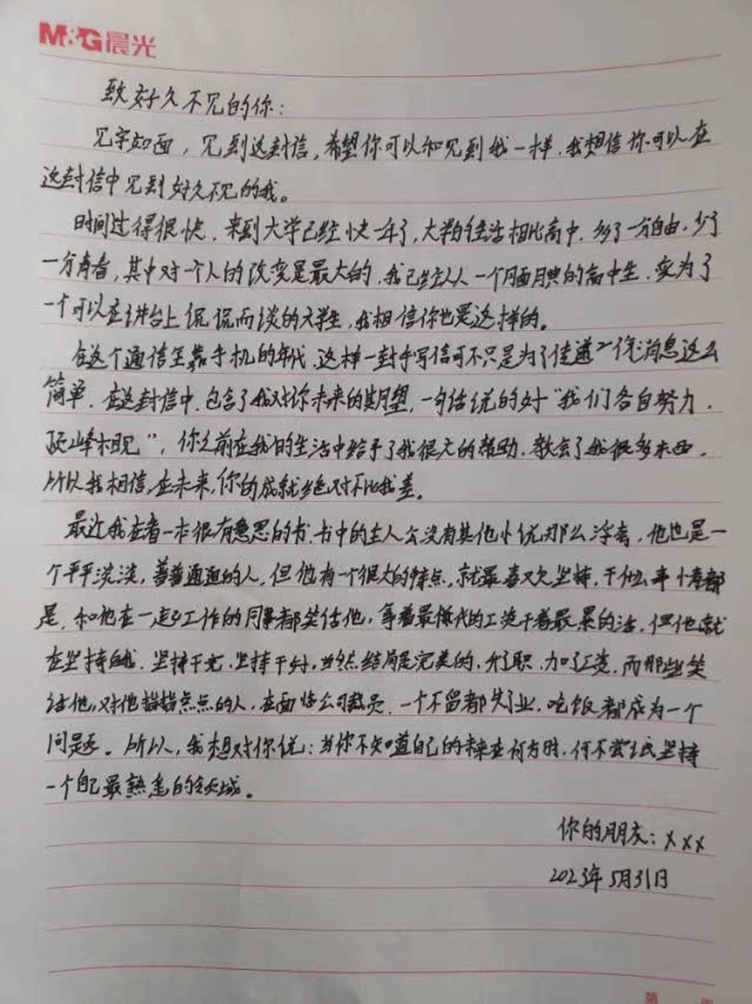 M&G晨光
致好久不见的你：
见字如面，见到这封信，希望你可以和见到我一样，我想信你可以在
这封信中见到好久不见的我。
时间过得很快，来到大学已经快一年了，大学的生活相比高中，多了一分自由，少了
一分青春，其中对一个人的改变是最大的，我已经从一个腼腆的高中生，变为了
一个可以在讲台上侃侃而谈的大学生，我相信你也是这样的。
在这个通信全靠手机的年代，这样一封手写信可不只是为了传递一份消息这么
简单，在这封信中，包含了我对你未来的期望，一句话说的好“我们各自努力，
顶峰相见”，你之前在我的生活中给予了我很大的帮助，教会了我很多东西，
所以我相信，在未来，你的成就绝对不比我差。
最近我在看一本很有意思的书，书中的主人公没有其他小说那么浮夸，他也是一
个平平淡淡，普普通通的人，但他有一个很大的特点，就是喜欢坚持，干什么事情都
是，和他在一起工作的同事都笑话他，拿着最低的工资干着最累的活，但他就
在坚持的，坚持干完，坚持干好，当然结局是完美的，升了职，加了工资，而那些笑
话他，对他指指点点的人，在面临公司裁员，一个不留都失了业，吃饭都成为一个
问题。所以，我想对你说：当你不知道自己的未来在何方时，何不尝试坚持
一个自己最熟悉的领域。
你的朋友：×××
2023年5月31日
第